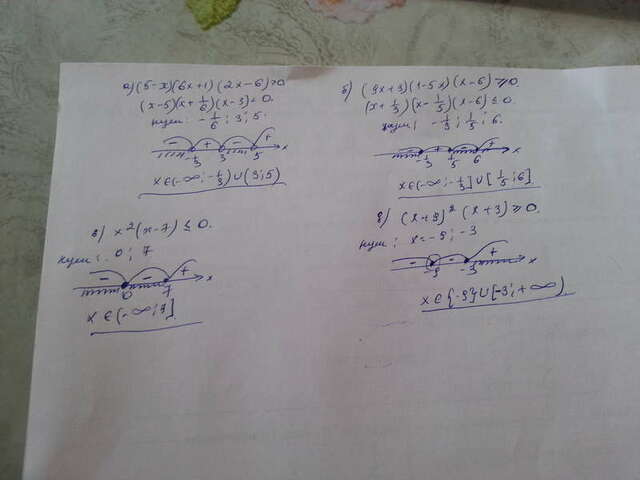 а) (5-x)(6x+1)(2x-6)>0
(x-5)(x+1/6)(x-3)<0.
нули: -1/6; 3; 5.
- + - + x
-1/3 3 5
x∈(-∞;-1/3)∪(3;5)
б) (9x+3)(1-5x)(x-6)≥0.
(x+1/3)(x-1/5)(x-6)≤0.
нули: -1/3; 1/5; 6.
- + - + x
-1/3 1/5 6
x∈(-∞;-1/3]∪[1/5;6]
в) x²(x-7)≤0.
нули: 0; 7
- - + x
0 7
x∈(-∞;7]
(x+9)²(x+3)≥0.
нули: x=-9; -3
- - + x
-9 -3
x∈{-9}∪[-3;+∞)